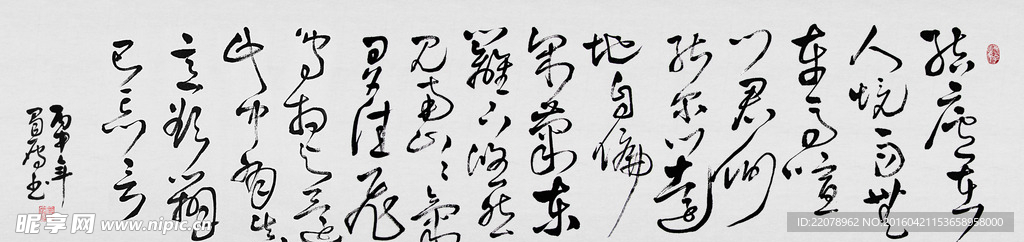 结廬在
人境而無
車馬喧
问君何
能尔心遠
地自偏
采菊東
籬下悠然
见南山〻氣
日夕佳飛
鸟相与還
此中有真
意欲辨
已忘言
丙申年
书
昵享网 www.nipic.cn
ID:22078962 NO:20160421153658958000